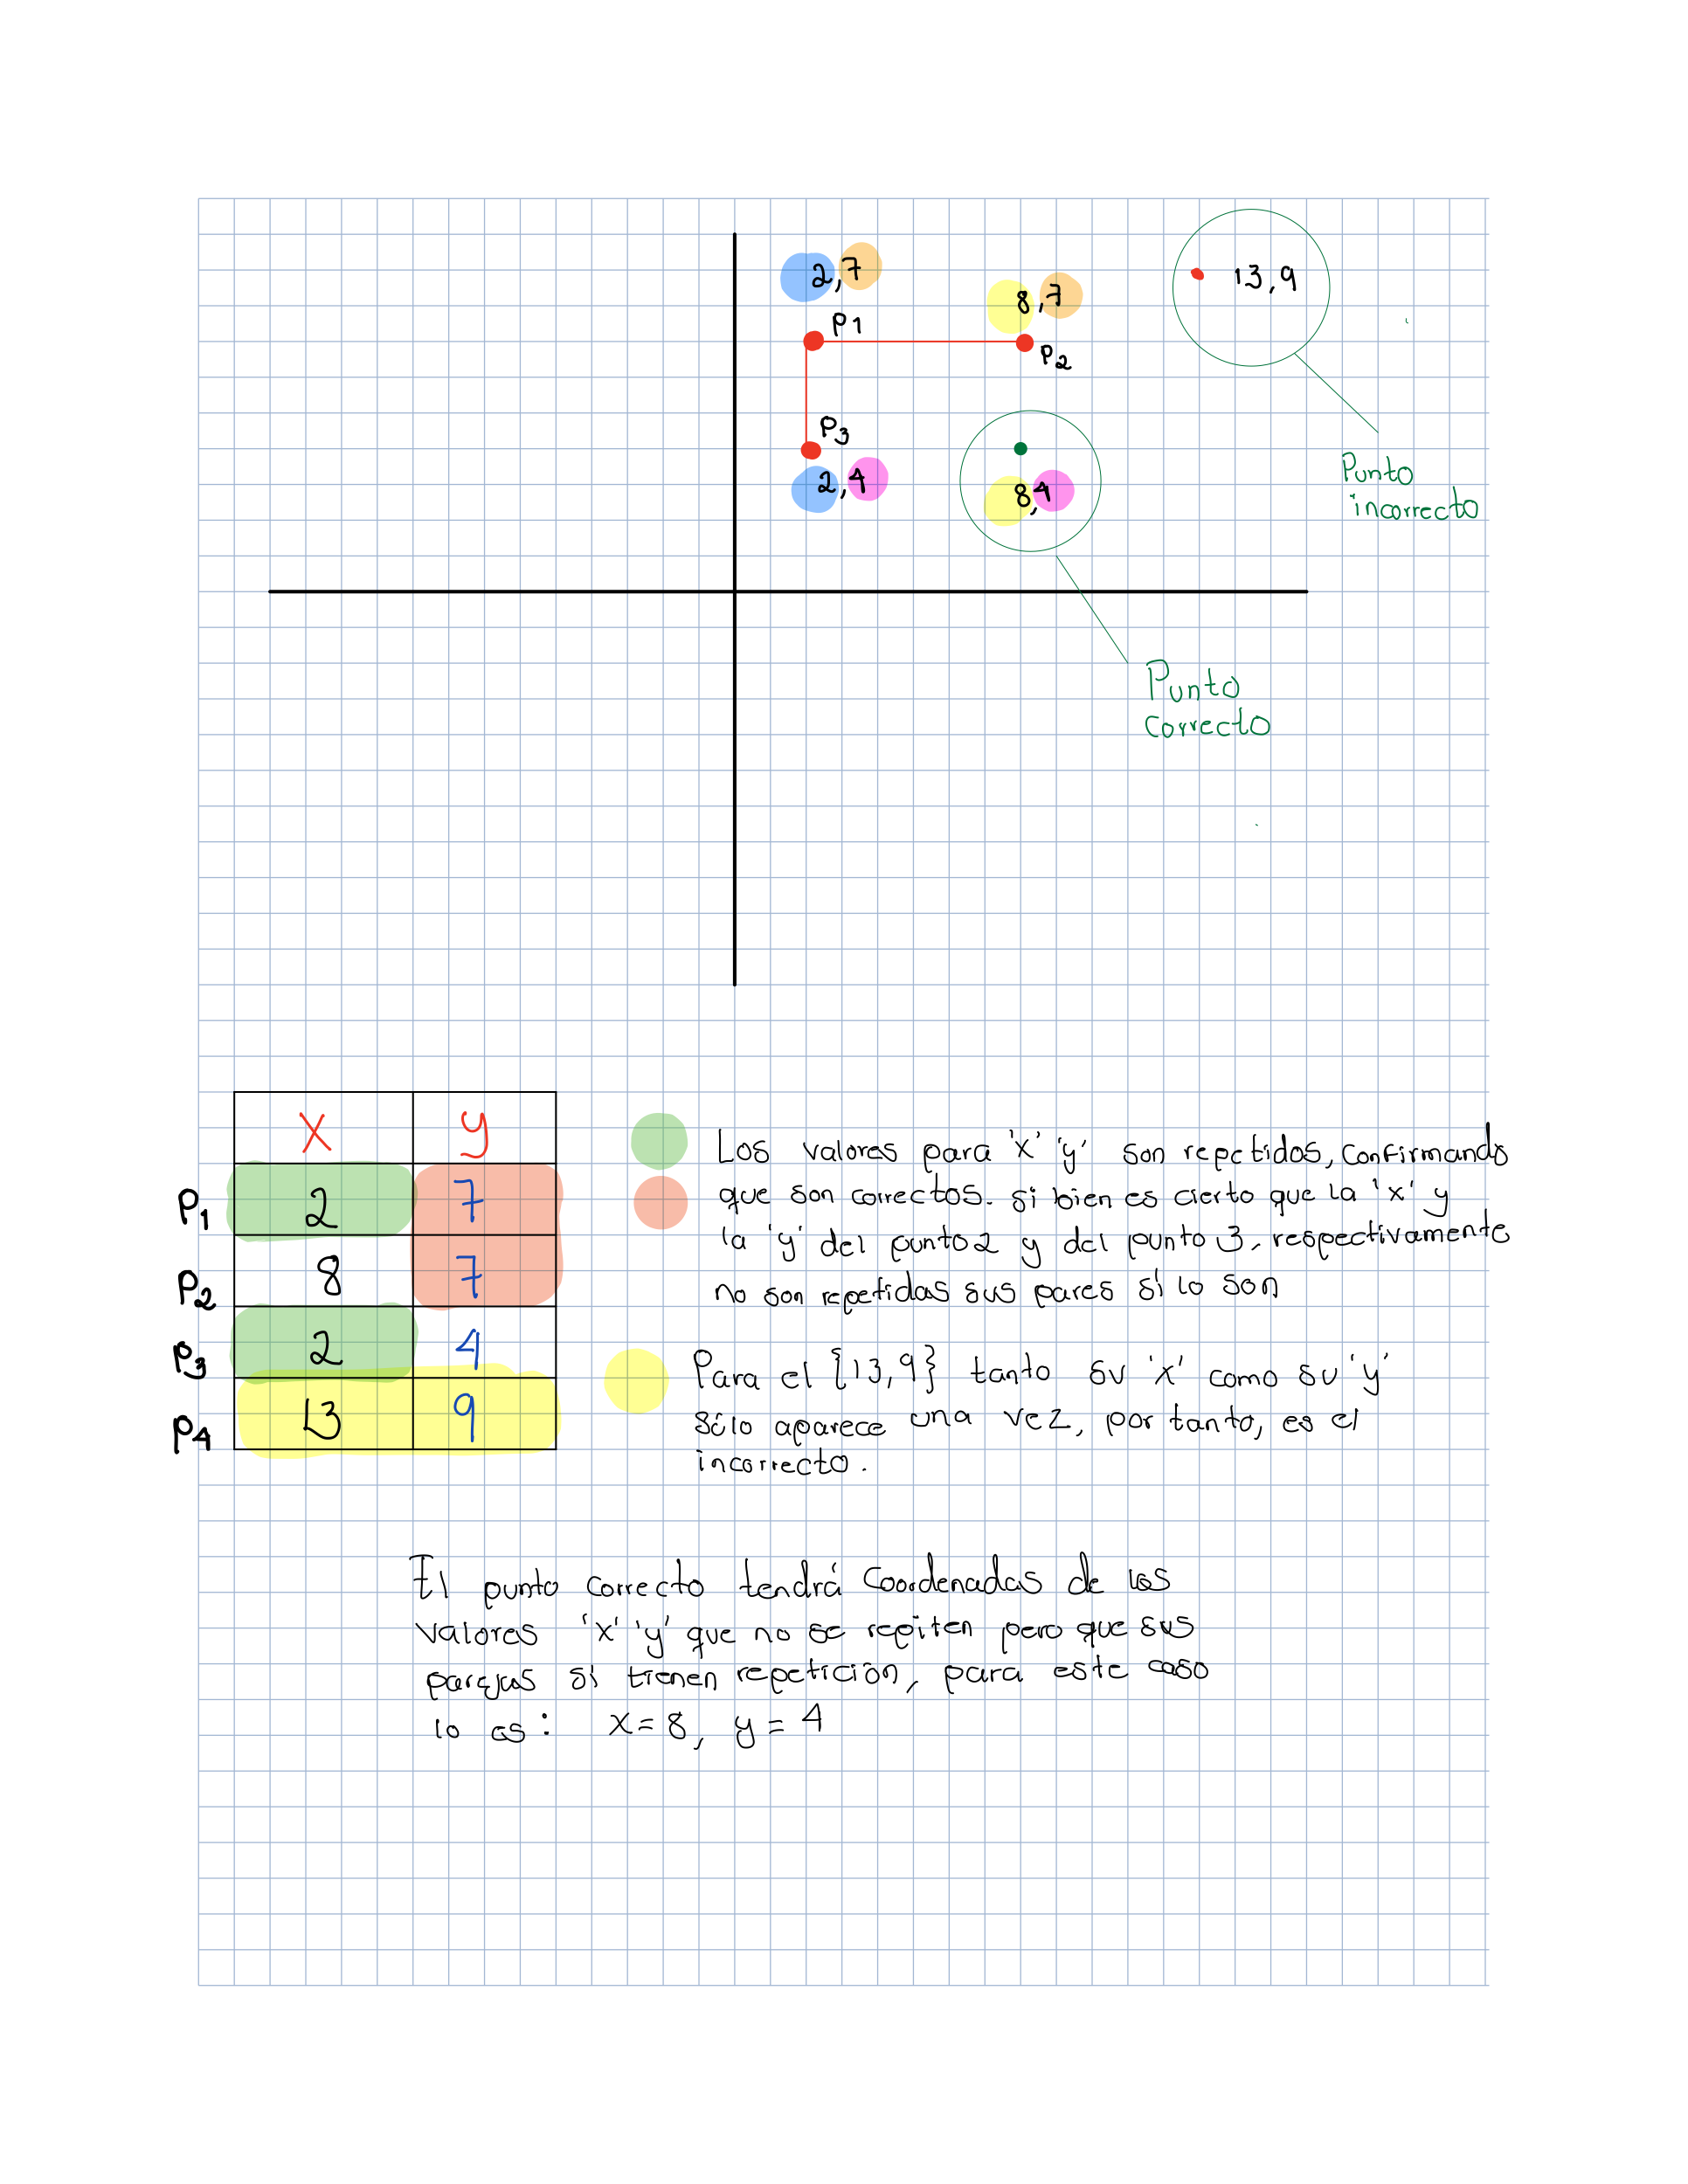 2,7
13,9
8,7
P1
P2
P3
2,4
8,4
Punto
incorrecto
Punto
correcto
x y
P1 2 7
P2 8 7
P3 2 4
P4 13 9
Los valores para 'x' 'y' son repetidos, confirmando
que son correctos. si bien es cierto que la 'x' y
la 'y' del punto 2 y del punto 3, respectivamente
no son repetidas sus pares sí lo son
Para el {13,9} tanto su 'x' como su 'y'
sólo aparece una vez, por tanto, es el
incorrecto.
El punto correcto tendrá coordenadas de los
valores 'x' 'y' que no se repiten pero que sus
parejas sí tienen repetición, para este caso
lo es: x=8, y=4